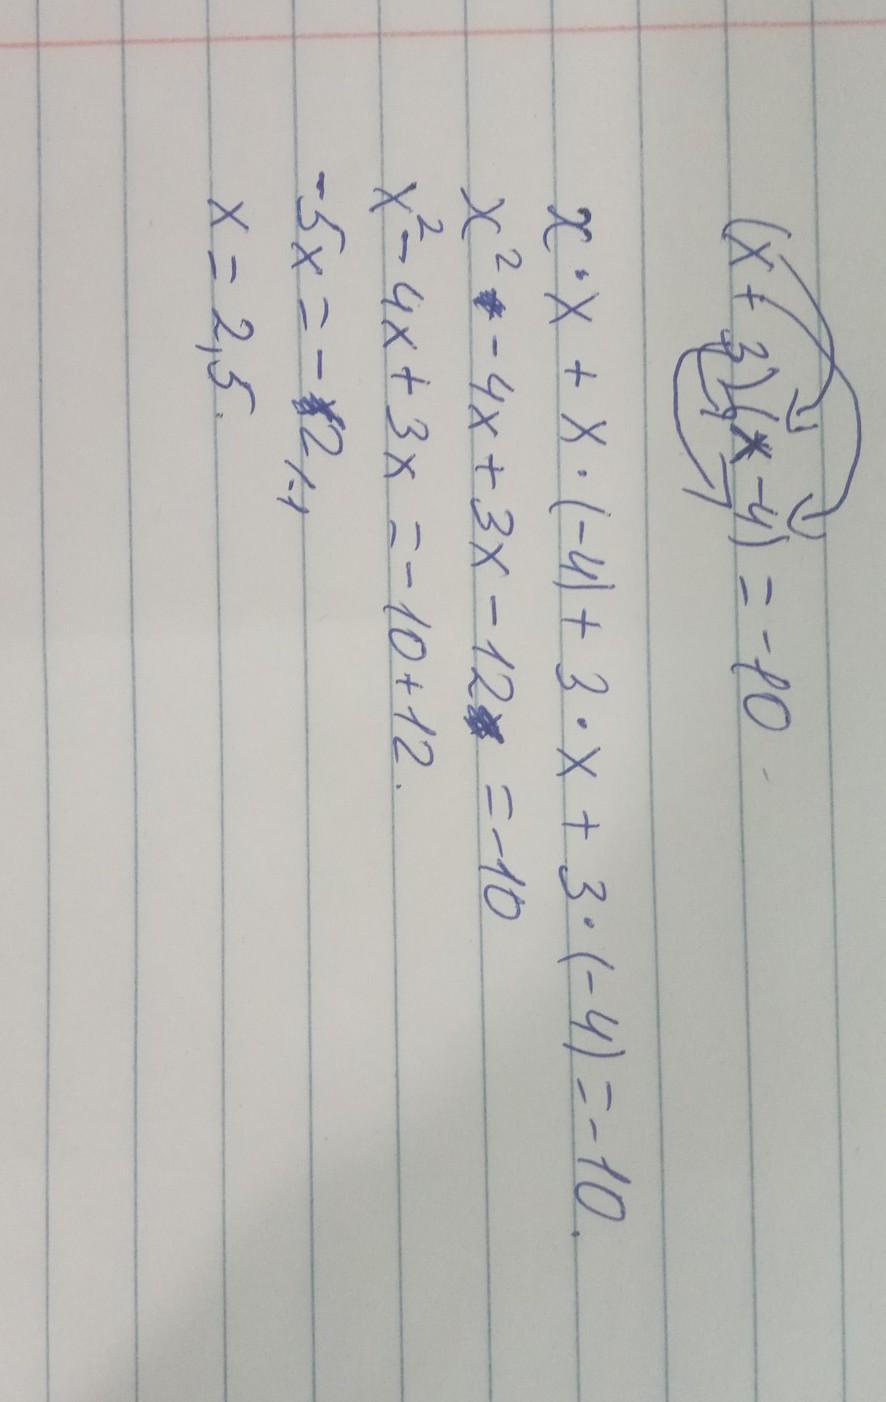 (x + 3)(x - 4) = -10
x · x + x · (-4) + 3 · x + 3 · (-4) = -10.
x² - 4x + 3x - 12 = -10
x² - 4x + 3x = -10 + 12.
-5x = -2
x = 2,5.